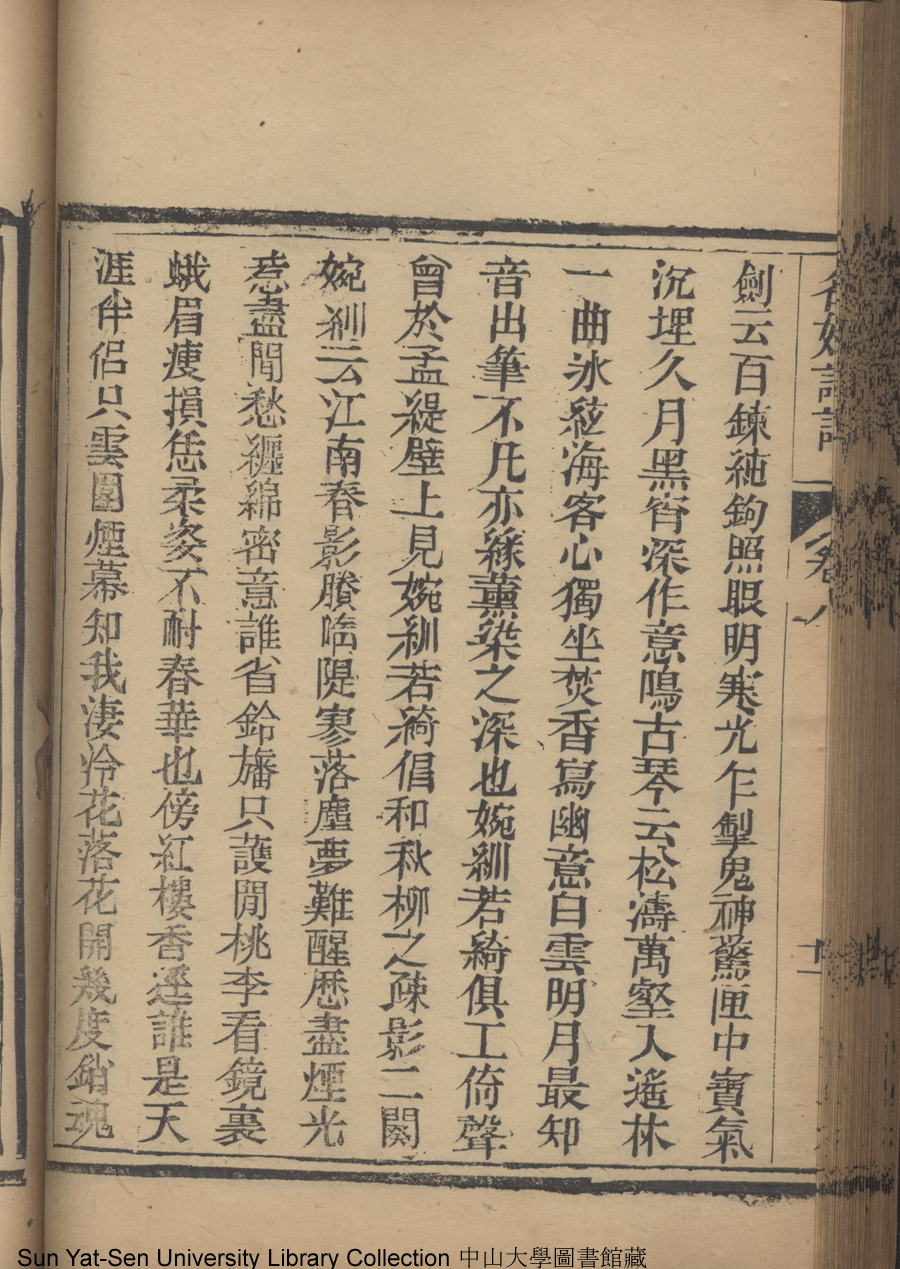 名媛詩話 卷八 十一
劍云百鍊純鉤照眼明寒光乍掣鬼神驚匣中寶氣
沉埋久月黑宵深作意鳴古琴云松濤萬壑入遙林
一曲冰絃海客心獨坐焚香寫幽意白雲明月最知
音出筆不凡亦緣薰染之深也婉紃若綺俱工倚聲
曾於孟緹壁上見婉紃若綺倡和秋柳之疎影二闋
婉紃云江南春影賸隋隄寥落塵夢難醒歷盡煙光
惹盡閒愁纏綿密意誰省鈴旛只護閒桃李看鏡裏
蛾眉瘦損恁柔姿不耐春華也傍紅樓香逕誰是天
涯伴侶只雲圍煙幕知我淒冷花落花開幾度銷魂
Sun Yat-Sen University Library Collection 中山大學圖書館藏